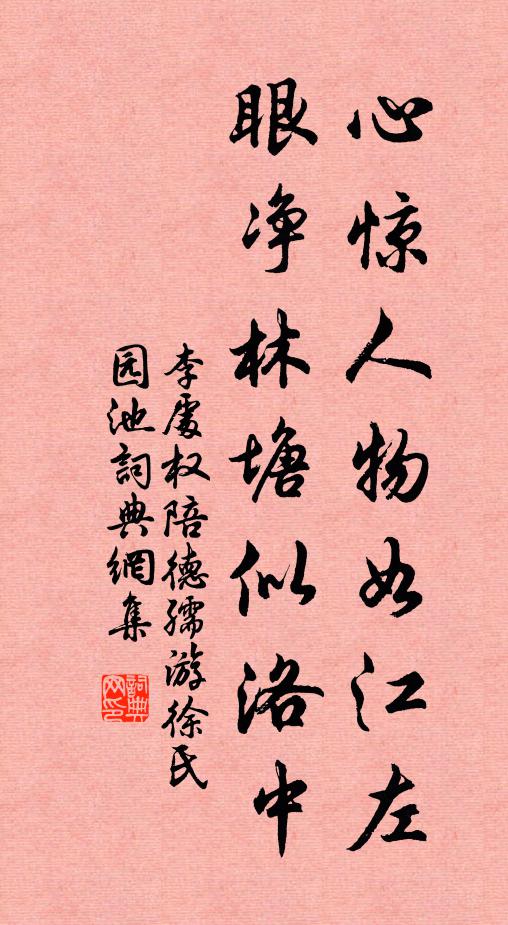 心惊人物如江左
眼净林塘似洛中
李處权陪德孺游徐氏
园池詞典網集
詞典
网印